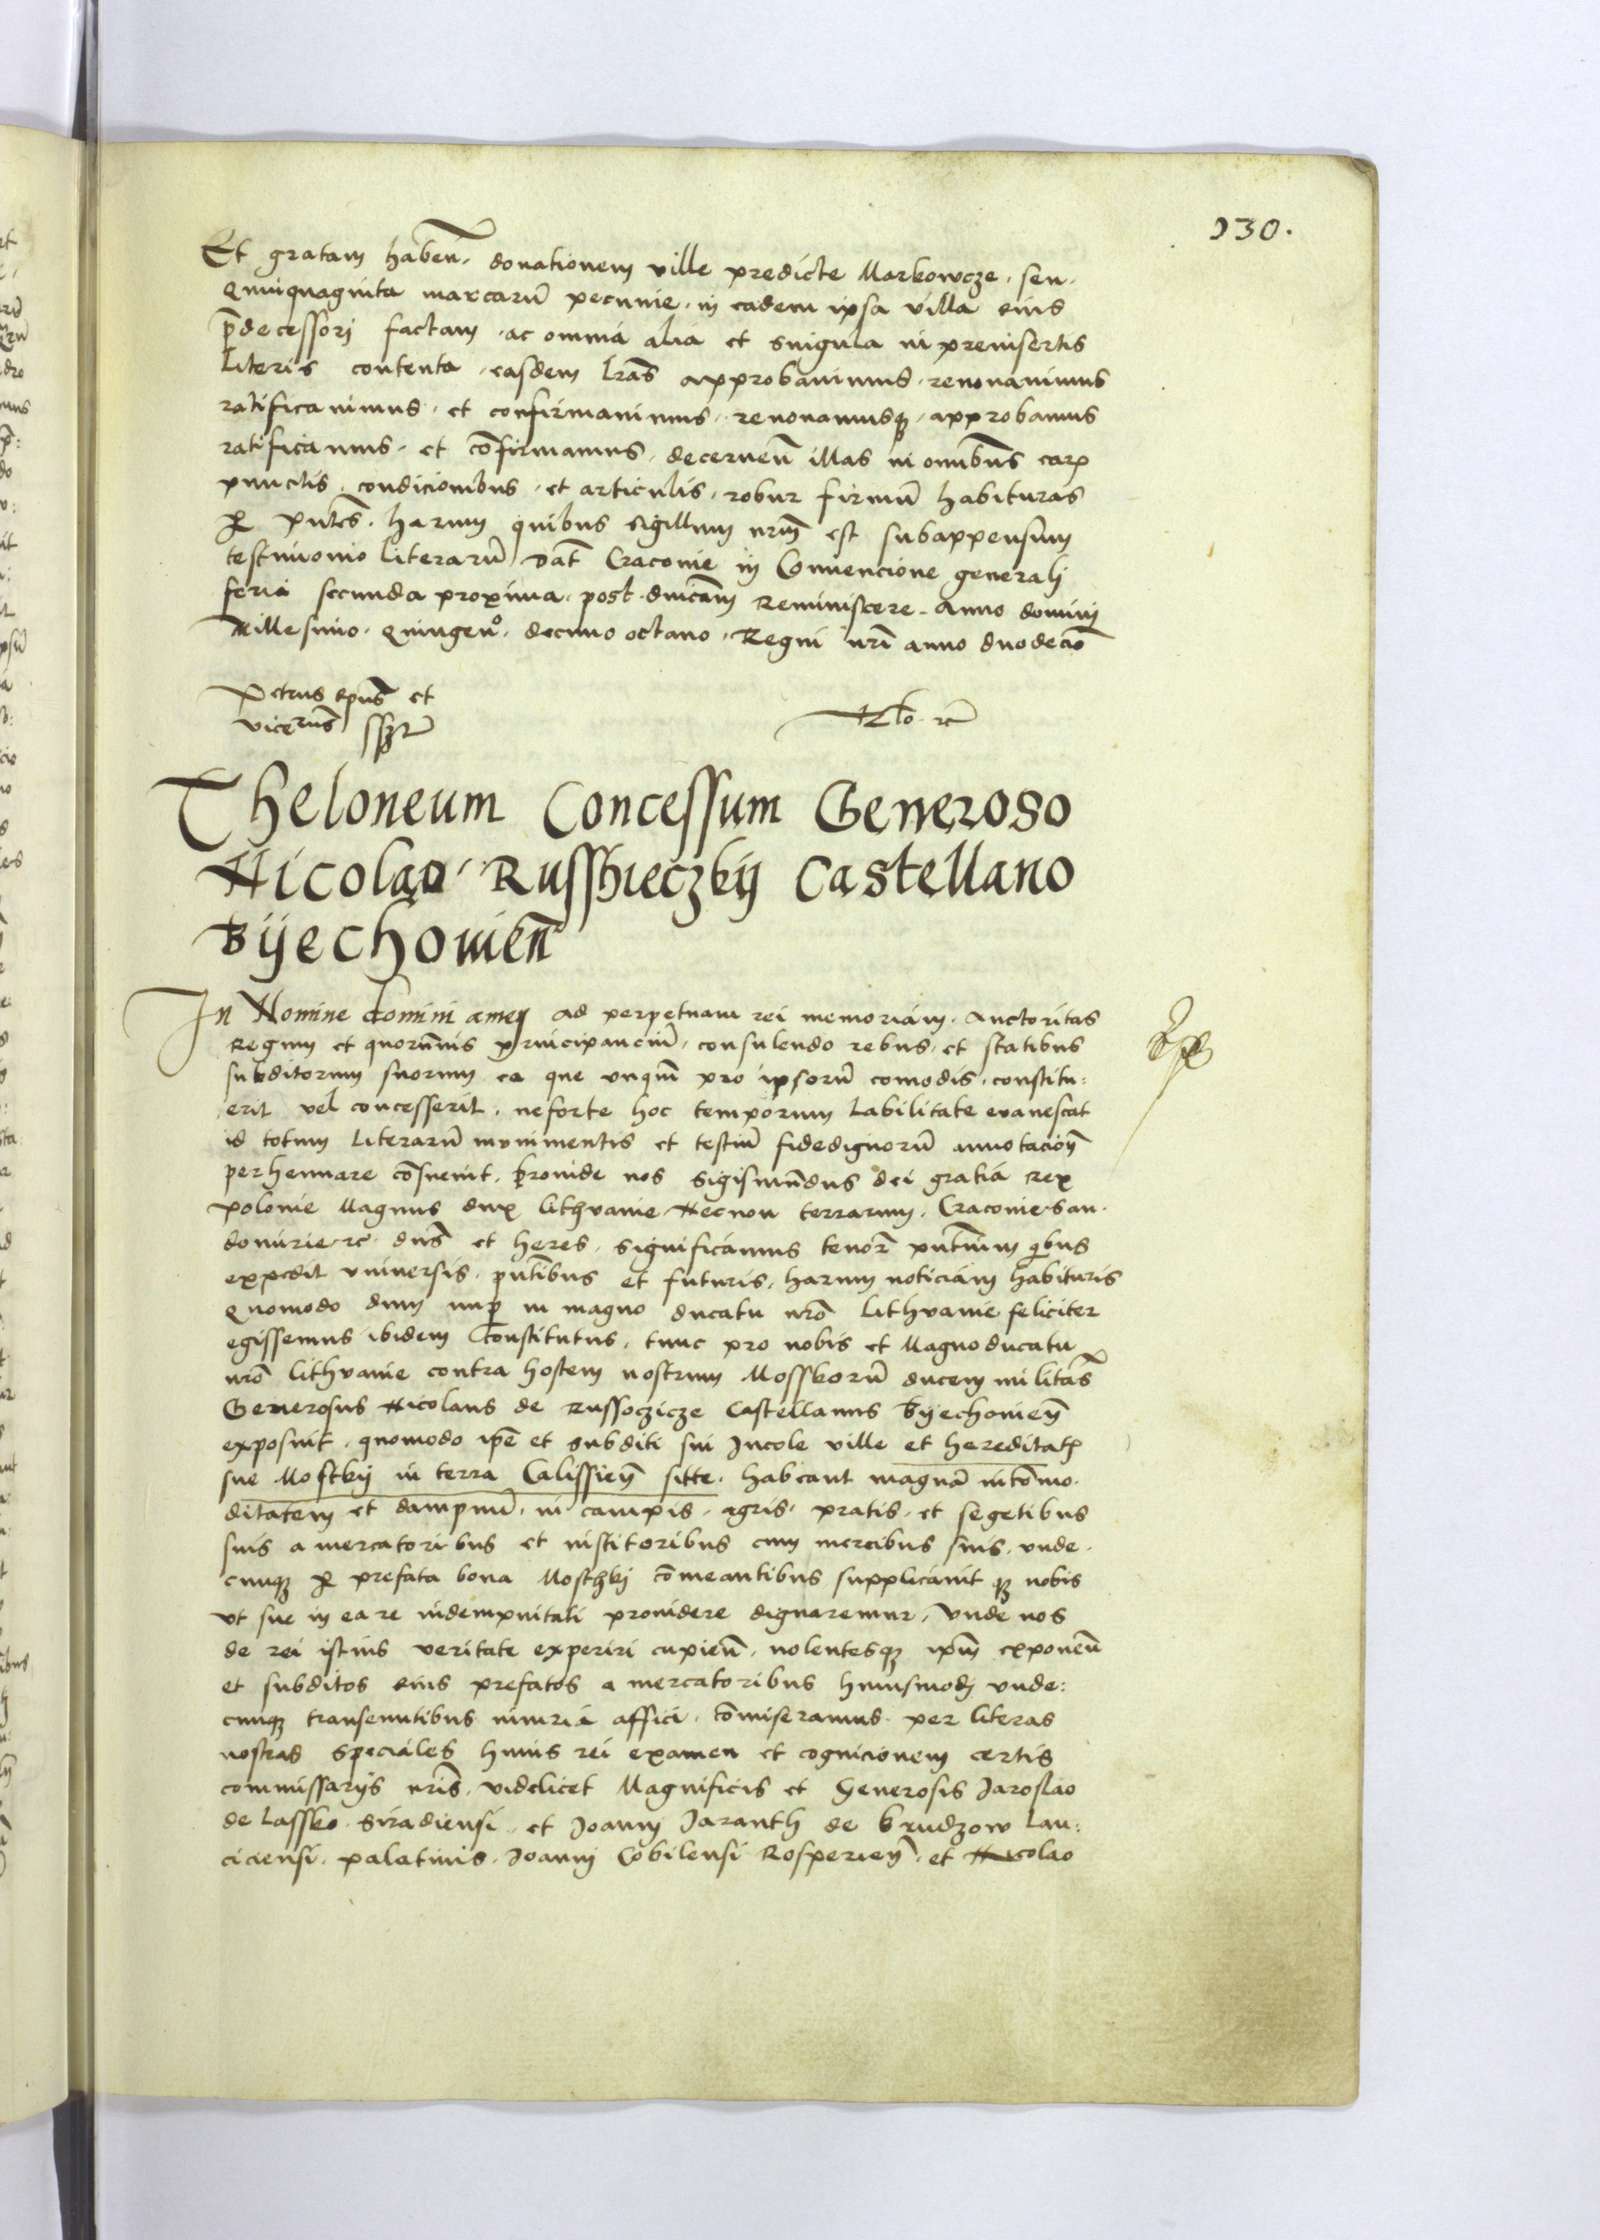 130.
Et gratam habeñ. donationem ville predicte Markowcze. seu.
Quinquaginta marcarũ pecunie. in eadem ipsa villa eius
p̃decessori factam. ac omnia alia et singula in preinsertis
literis contenta. easdem lrãs approbavimus. renovavimus
ratificavimus. et confirmavimus. renovamusqꝫ. approbamus
ratificamus. et cõfirmamus. decerneñ illas in omnibus earꝝ
punctis. condicionibus. et articulis. robur firmũ habituras
ꝑ pñtes. harum quibus sigillum nrm̃ est subappensum
testimonio literarũ Dat̃ Cracovie in Convencione generali
feria secunda proxima. post. dnicam̃ Reminiscere. Anno domini
Millesimo. Quingeno. decimo octavo. Regni nri anno duodecĩo
Petrus epũs et
vicecũs sszt
Theloneum Concessum Generoso
Nicolao Russhieczkij Castellano
Bijechovieñ
In Nomine domini amen Ad perpetuam rei memoriam. Auctoritas
Regum et quorumvis principancium. consulendo rebus. et statibus
subditorum suorum ea que unquã pro ipsorũ comodis. constitu:
erit vel concesserit. neforte hoc temporum labilitate evanescat
id totum literarũ munimentis et testiũ fidedignorũ annotacioñ
perhennare cõsuevit. Proinde nos Sigismũdus dei gratia Rex
Polonie Magnus dux lithvanie Necnon terrarum. Cracovie. San.
domirie. rc. dñs et heres. significamus tenor̃ pñtium quibus
expedit universis. pñtibus et futuris. harum noticiam habituris
Quomodo dum nuꝑ in magno ducatu nrõ lithvanie feliciter
egissemus ibidem Constitutus. tunc pro nobis et Magno ducatu
nrõ lithvanie contra hostem nostrum Mosskorũ ducem militãs
Generosus Nicolaus de Russoczicze Castellanus Byechovieñ
exposuit. quomodo ipse et subditi sui Incole ville et hereditatꝭ
sue Mostkij in terra Calissieñ sitte. habeant magnã incõmo.
ditatem et dampnũ. in campis. agris. pratis. et segetibus
suis a mercatoribus et institoribus cum mercibus suis. unde.
cunqꝫ ꝑ prefata bona Mosthkj cõmeantibus supplicavit qꝫ nobis
ut sue in ea re indempnitati providere dignaremur. Unde nos
de rei istius veritate experiri cupieñ. nolentesqꝫ ipm̃ exponeñ
et subditos eius prefatos a mercatoribus huiusmodj unde:
cunqꝫ transeuntibus iniuria affici. cõmiseramus per literas
nostras speciales huius rei examen et cognicionem certis
commissarijs nris̃. videlicet Magnificis et Generosis Jaroslao
de Lassko. Siradiensi. et Joanni Jaranth de Brudzow Lan:
ciciensi. palatinis. Joanni Cobilensi Rosperieñ. et Nicolao